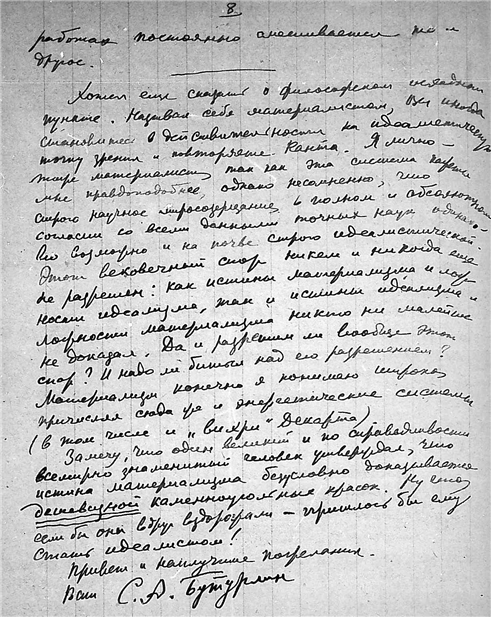 8
работах постоянно смешивается то и
другое.
Хотел еще сказать о философском исходном
пункте. Называя себя материалистом, Вы иногда
становитесь в действительности на идеалистическую
точку зрения и повторяете Канта. Я лично –
тоже материалист, так как эта система кажется
мне правдоподобнее, однако несомненно, что
строго научное миросозерцание, в полном и абсолютном
согласии со всеми данными точных наук одинако-
во возможно и на почве строго идеалистической.
Этот вековечный спор никем и никогда еще
не разрешен: как истины материализма и лож
ности идеализма, так и истины идеализма и
ложности материализма никто ни малейше
не доказал. Да и разрешим ли вообще этот
спор? И надо ли биться над его разрешением?
Материализм конечно я понимаю широко,
причисляя сюда же и энергетические системы
(в том числе и "вихри" Декарта)
Замечу, что один великий и по справедливости
всемирно знаменитый человек утверждал, что
истина материализма безусловно доказывается
дешевизной каменноугольных красок. Ну что
если бы они вдруг вздорожали – пришлось бы ему
стать идеалистом!
Привет и наилучшие пожелания.
Ваш С. А. Бутурлин